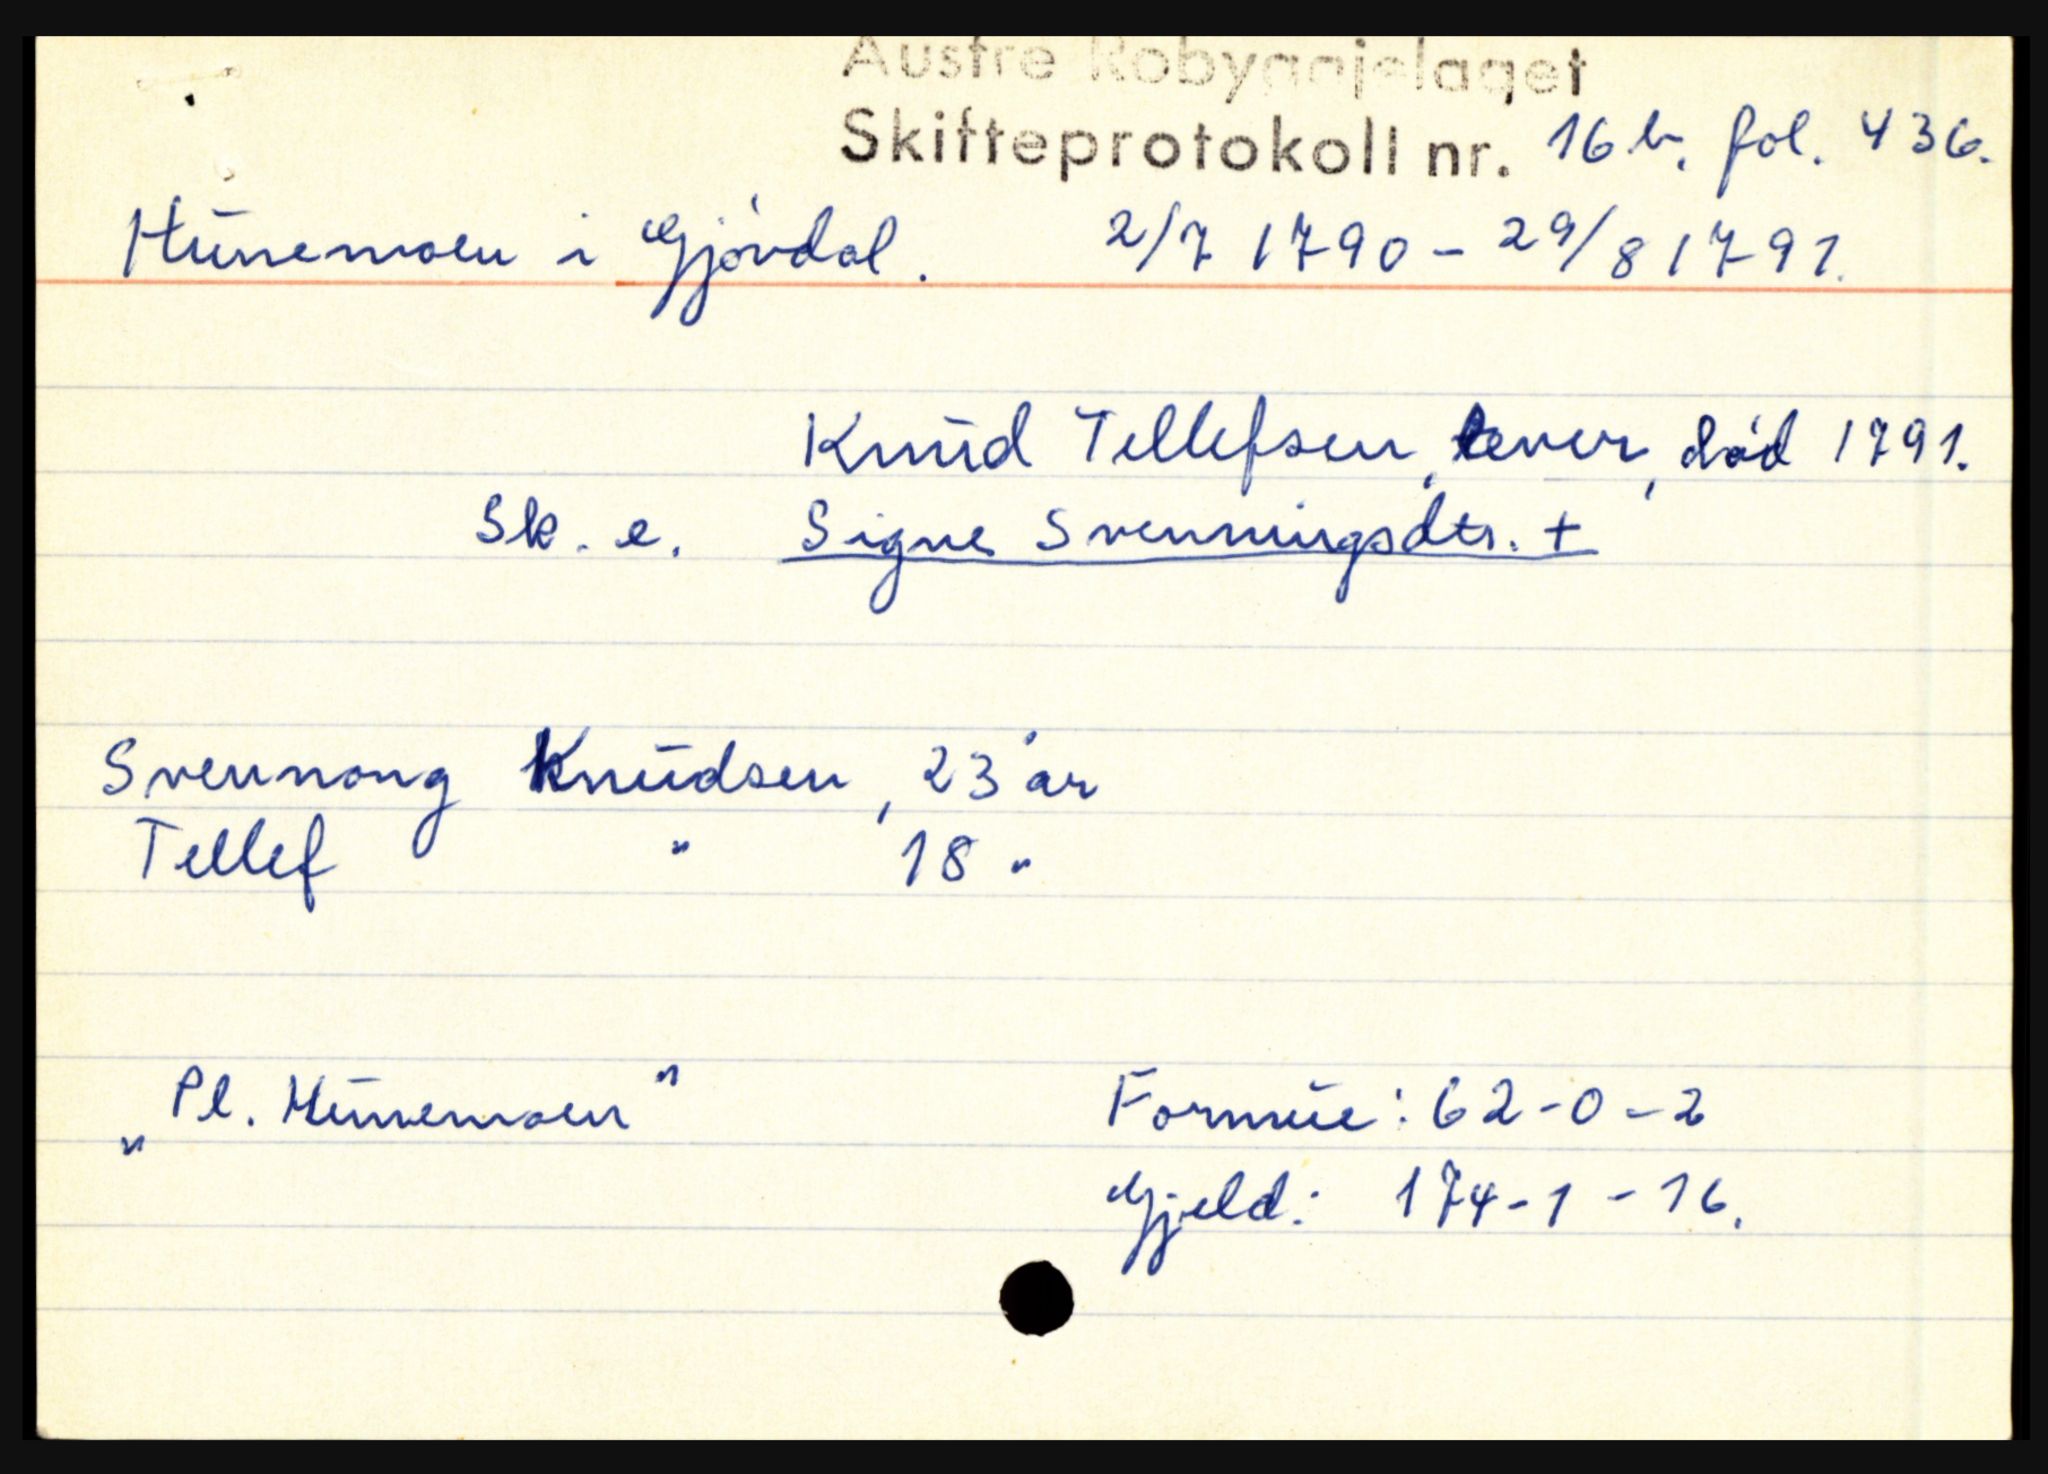 Austre Robyggjelaget
Skifteprotokoll nr. 16 b, fol. 436.
Hunemoen i Gjövdal. 2/7 1790 - 29/8 1791.
Knud Tellefsen, lever, död 1791.
Sk. e. Signe Svenningsdtr. +
Svennong Knudsen, 23 år
Tellef " 18 "
„Pl. Hunemoen"
Formue: 62-0-2
Gjeld: 174-1-16.